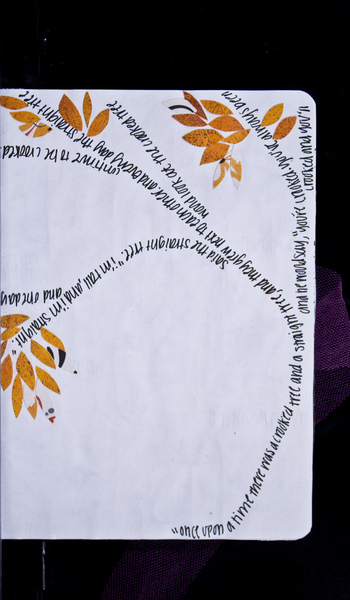 "once upon a time there was a crooked tree and a straight tree, and they grew next to each other. and every day the straight tree
would look at the crooked tree
and he would say, "you're crooked. you've always been
crooked and you'll
continue to be crooked
said the straight tree. "i'm tall, and i'm straight."
and one day